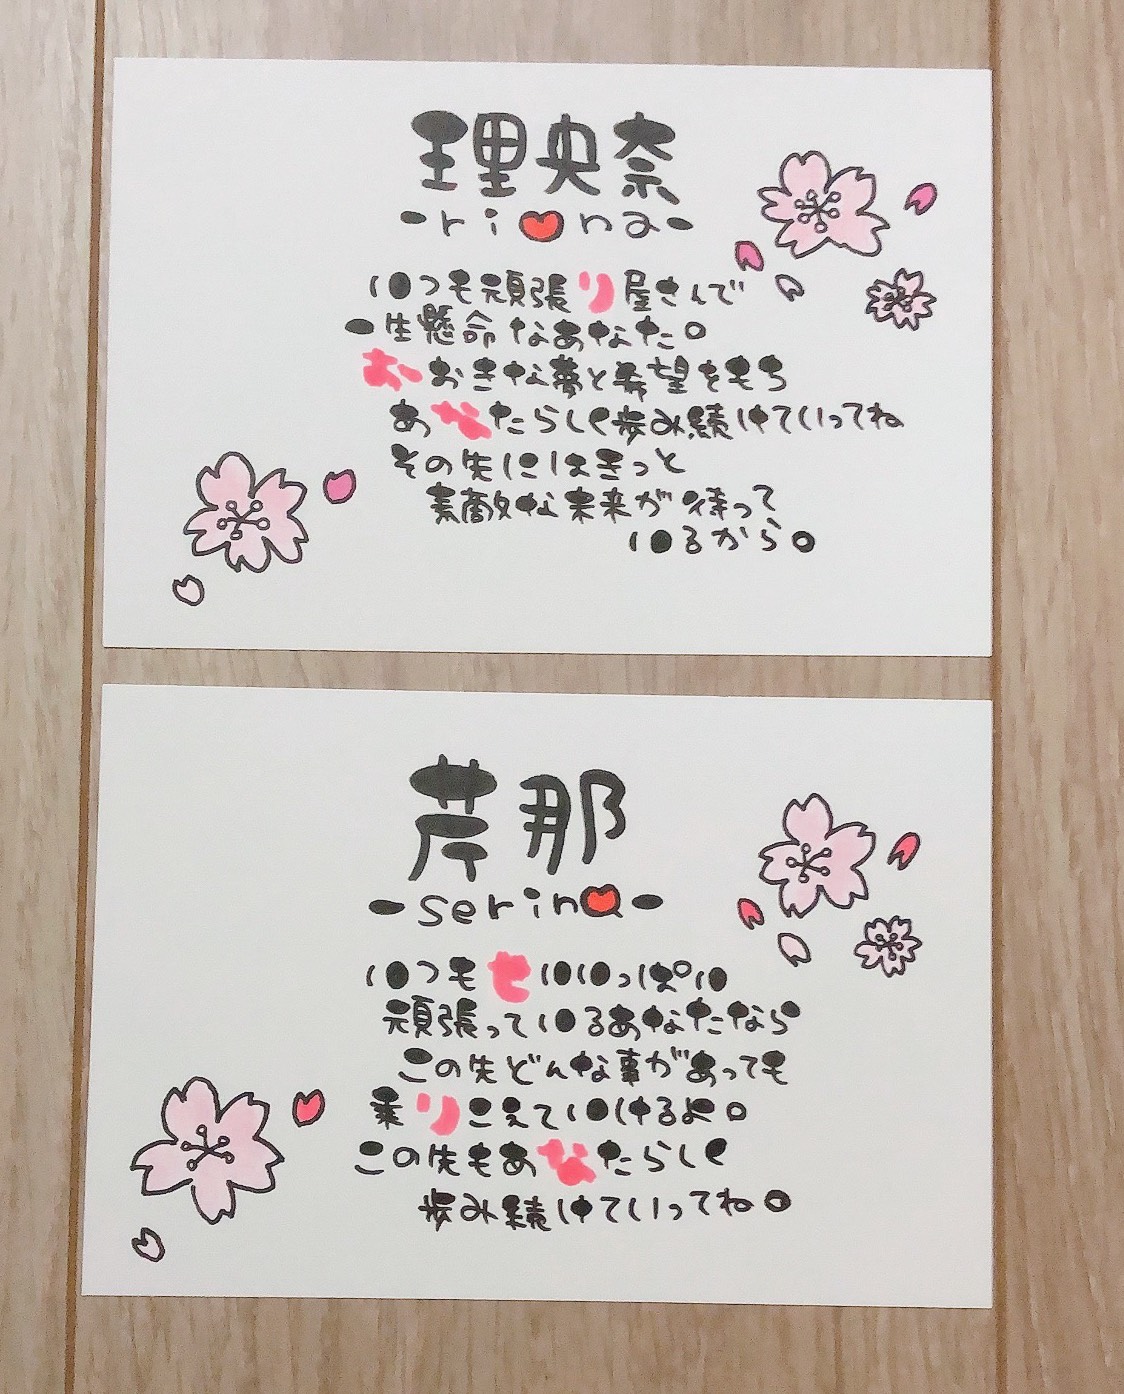 理央奈
-ri♥na-
いつも頑張り屋さんで
一生懸命なあなた。
おおきな夢と希望をもち
あなたらしく歩み続けていってね
その先にはきっと
素敵な未来が待って
いるから。
芹那
-serina-
いつもせいいっぱい
頑張っているあなたなら
この先どんな事があっても
乗りこえていけるよ。
この先もあなたらしく
歩み続けていってね。